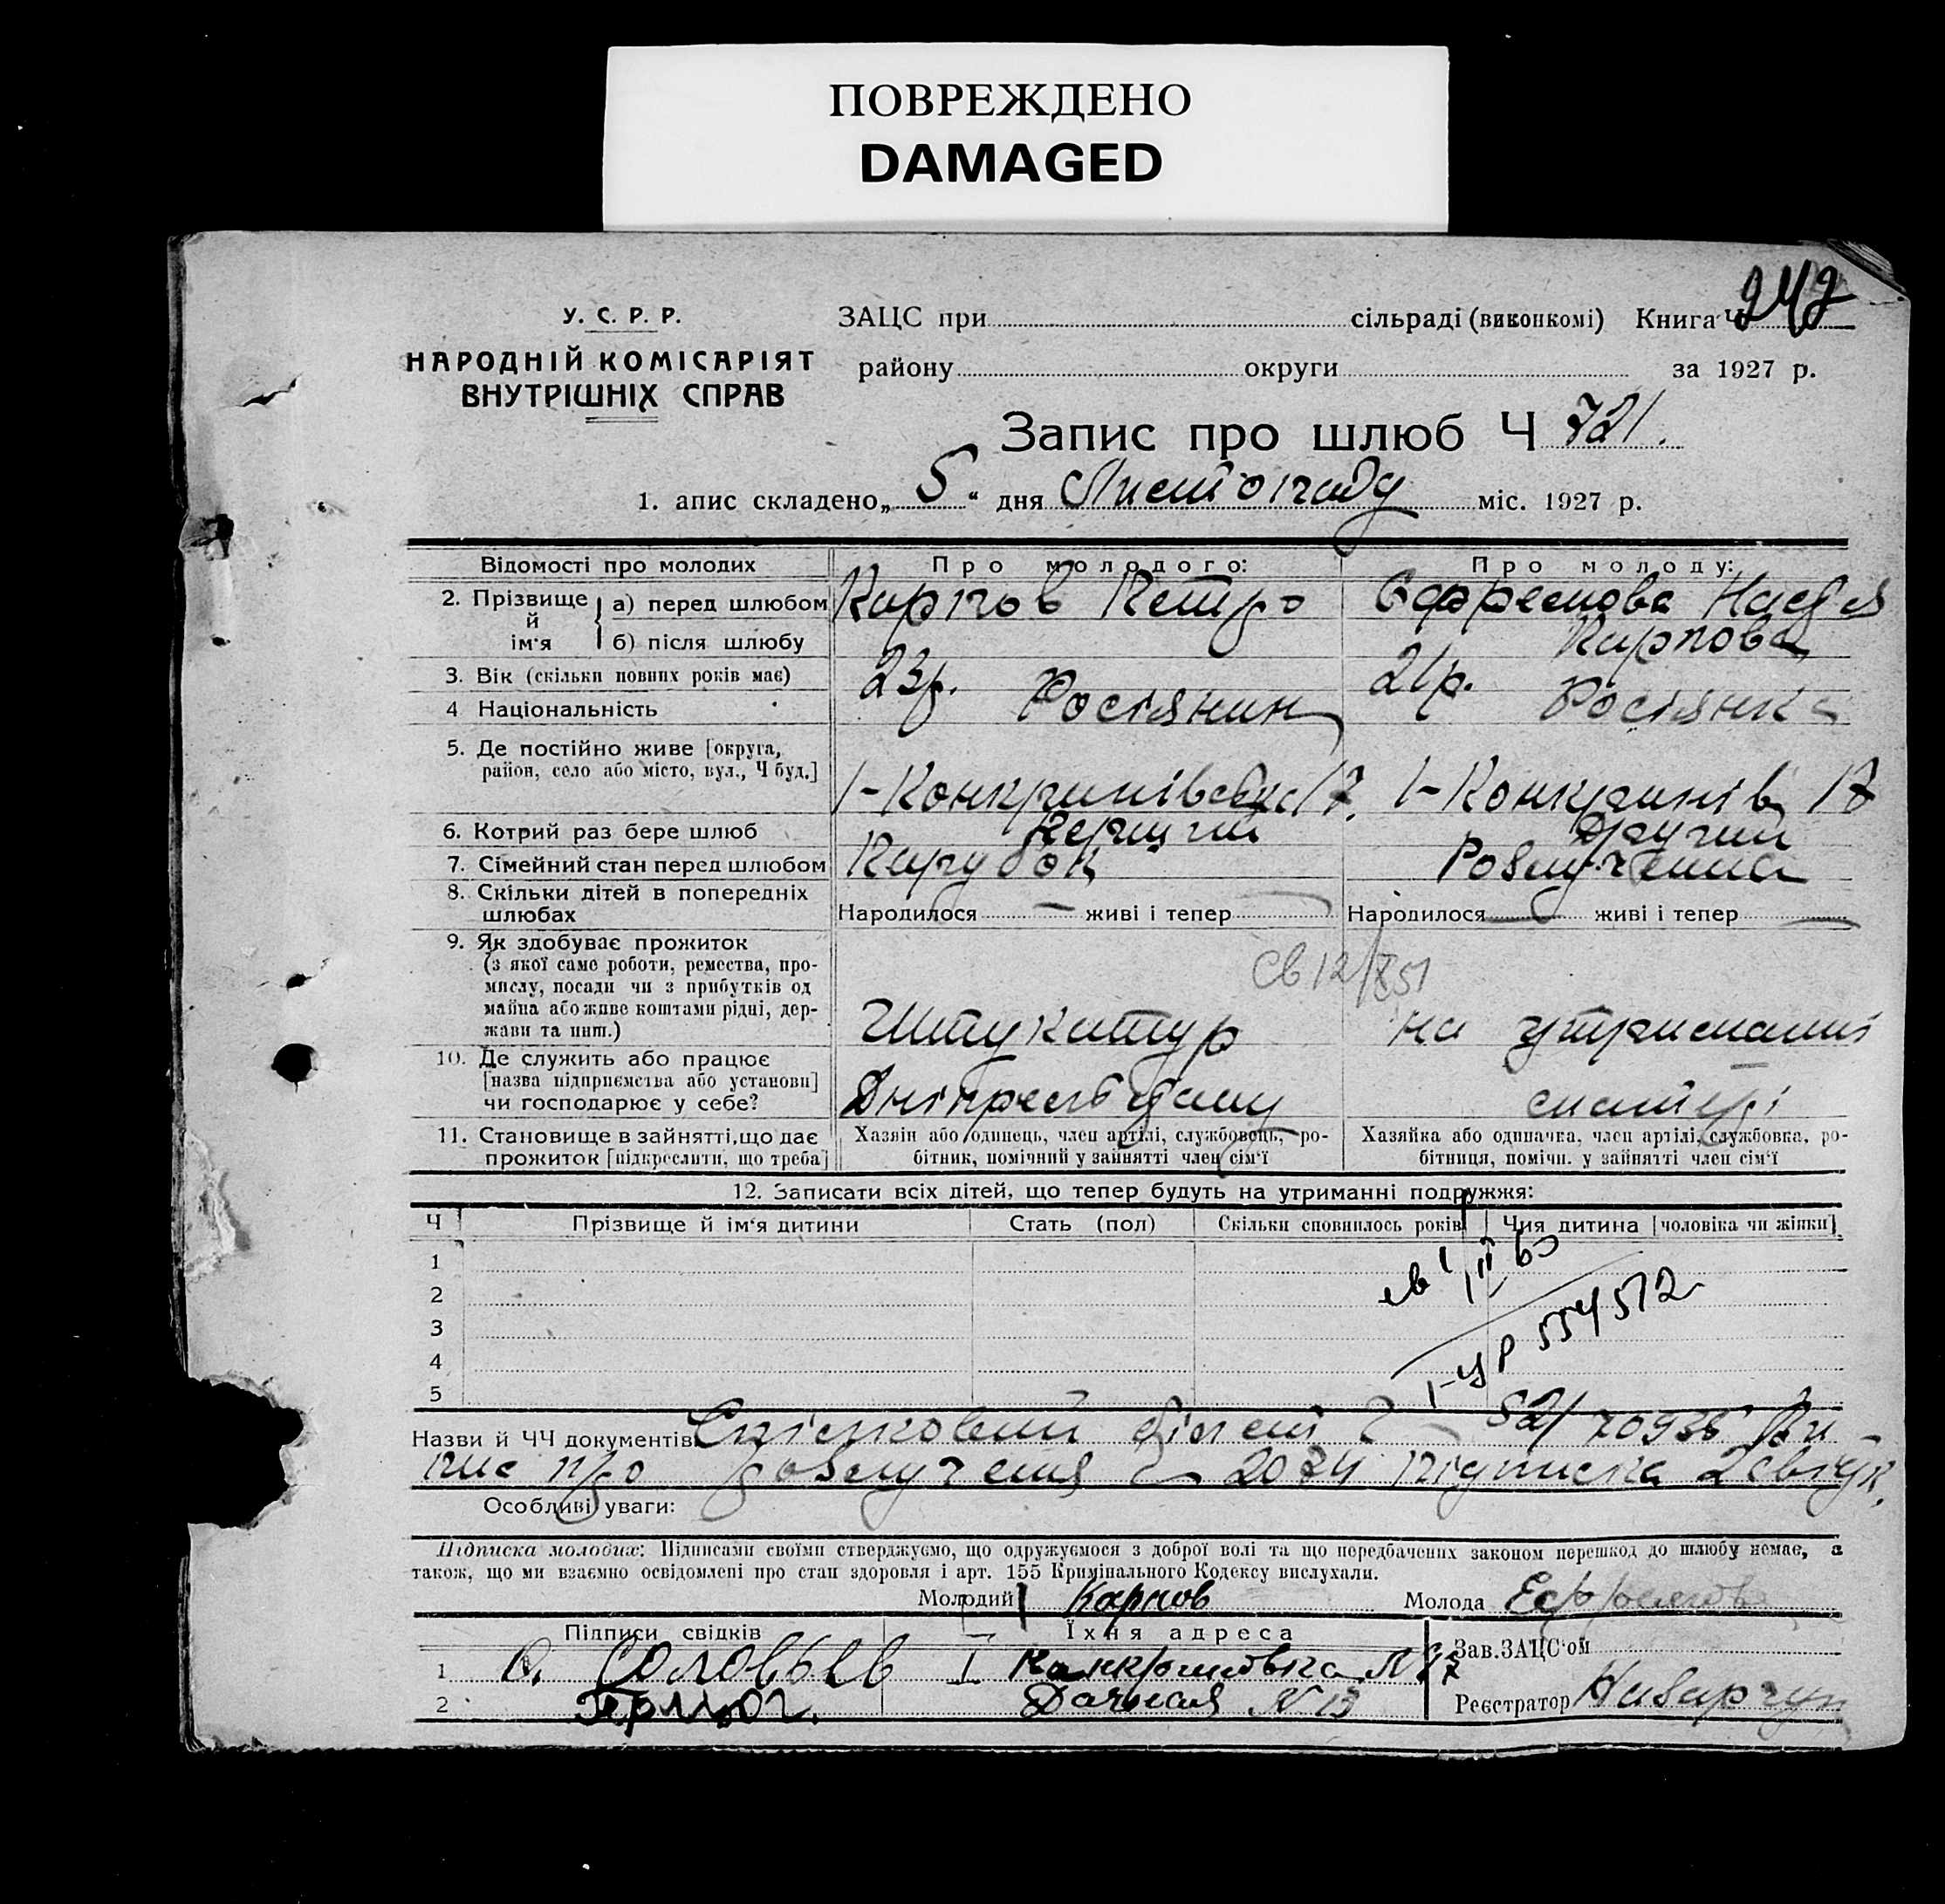 ПОВРЕЖДЕНО
DAMAGED
242
У. С. Р. Р.
НАРОДНІЙ КОМІСАРІЯТ
ВНУТРІШНІХ СПРАВ
ЗАЦС при сільраді (виконкомі) Книга Ч
району округи за 1927 р.
Запис про шлюб Ч 721.
1. апис складено „ 5 “ дня Листопаду міс. 1927 р.
Відомості про молодих Про молодого: Про молоду:
2. Прізвище й ім'я а) перед шлюбом Карпов Петро Єфремова Надія
б) після шлюбу Карпова
3. Вік (скільки повних років має) 23р. 21р.
4 Національність Росіянин Росіянка
5. Де постійно живе [округа,
район, село або місто, вул., Ч буд.]
17. 17
6. Котрий раз бере шлюб Перший Другий
7. Сімейний стан перед шлюбом Парубок Розлучена
8. Скільки дітей в попередніх
шлюбах
Народилося — живі і тепер Народилося — живі і тепер —
9. Як здобуває прожиток
(з якої саме роботи, ремества, про-
мислу, посади чи з прибутків од
майна або живе коштами рідні, дер-
жави та инш.)
Св 12/851
Штукатур на утриманні
10. Де служить або працює
[назва підприємства або установи]
чи господарює у себе?
матері
11. Становище в зайнятті, що дає
прожиток [підкреслити, що треба]
Хазяін або одинець, член артілі, службовець, ро-
бітник, помічний у зайнятті член сім'ї
Хазяйка або одиначка, член артілі, службовка, ро-
бітниця, помічн. у зайнятті член сім'ї
12. Записати всіх дітей, що тепер будуть на утриманні подружжя:
Ч Прізвище й ім'я дитини Стать (пол) Скільки сповнилось років Чия дитина [чоловіка чи жінки]
1
2
3
4
5
554512
Назви й ЧЧ документів: Спілковий білет Ч Ви
пис про розлучення Ч 2074 підписка 2 свідк.
Особливі уваги:
Підписка молодих: Підписами своїми стверджуємо, що одружуємося з доброї волі та що передбачених законом перешкод до шлюбу немає, а
також, що ми взаємно освідомлені про стан здоровля і арт. 155 Кримінального Кодексу вислухали.
Молодий Карпов Молода
Підписи свідків Їхня адреса Зав. ЗАЦС'ом
1 Соловьев
2 Дачная N 13
Реєстратор